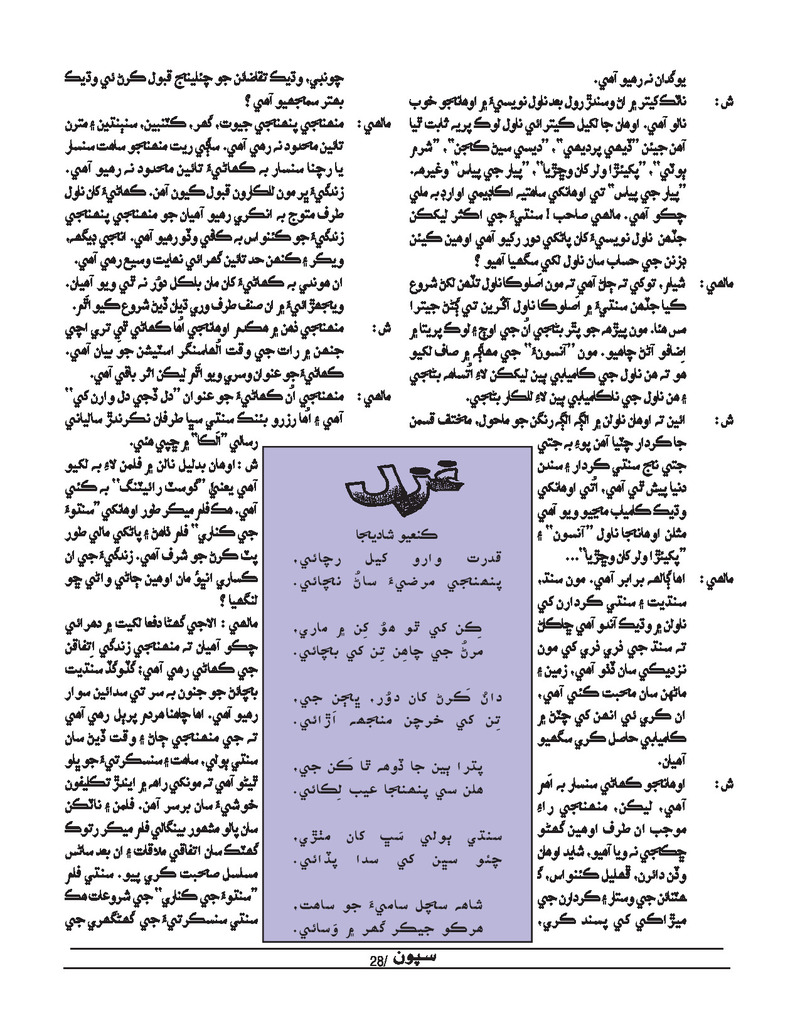 يوگدان نہ رهيو آهي.
ش : ناٽڪ کيتر ۾ اڻ وسندڙ رول بعد ناول نويسيءَ ۾ اوهانجو خوب
نالو آهي. اوهان جا لکيل ڪيترائي ناول لوڪ پريہ ثابت ٿيا
آهن جيئن ”ڏيهي پرديهي“, ”ديسي سيڻ ڪجن“, ”شرم
ٻوٽي“, ”پکيئڙا ولر کان وڇڙيا“, ”پيار جي پياس“ وغيره.
”پيار جي پياس“ تي اوهانکي ساهتيہ اڪاڊيمي اوارڊ بہ ملي
چڪو آهي. مالهي صاحب ! سنڌيءَ جي اڪثر ليکڪن
جڏهن ناول نويسيءَ کان پاڻکي دور رکيو آهي اوهين ڪيئن
ڊزنن جي حساب سان ناول لکي سگهيا آهيو ؟
مالهي : شيام, توکي تہ ڄاڻ آهي تہ مون اَصلوڪا ناول تڏهن لکڻ شروع
ڪيا جڏهن سنڌيءَ ۾ اصلوڪا ناول آڱرين تي ڳڻڻ جيترا
مس هئا. مون پيڙهہ جو پٿر بڻجي اُن جي اوج ۽ لوڪ پريتا ۾
اِضافو آڻڻ چاهيو. مون ”آنسونءَ“ جي مهاڳہ ۾ صاف لکيو
هو تہ هن ناول جي ڪاميابي ٻين ليکڪن لاءِ اُتساهہ بڻجي
۽ هن ناول جي ناڪاميابي ٻين لاءِ للڪار بڻجي.
ش : ائين تہ اوهان ناولن ۾ الڳہ الڳہ رنگن جو ماحول, مختلف قسمن
جا ڪردار چٽيا آهن پوءِ بہ جتي
جتي ناج سنڌي ڪردار ۽ سندن
دنيا پيش ٿي آهي, اُتي اوهانکي
وڌيڪ ڪامياب مڃيو ويو آهي
مثلن اوهانجا ناول ”آنسون“ ۽
”پکيئڙا ولر کان وڇڙيا“...
مالهي : اها ڳالهہ برابر آهي. مون سنڌ,
سنڌيت ۽ سنڌي ڪردارن کي
ناولن ۾ وڌيڪ آندو آهي ڇاڪاڻ
تہ سنڌ جي ذري ذري کي مون
نزديڪي سان ڏٺو آهي, زمين ۽
ماڻهن سان محبت ڪئي آهي,
ان ڪري ئي انهن کي چٽڻ ۾
ڪاميابي حاصل ڪري سگهيو
آهيان.
ش : اوهانجو ڪهاڻي سنسار بہ اَهر
آهي, ليڪن, منهنجي راءِ
موجب ان طرف اوهين گهڻو
ڇڪجي نہ ويا آهيو, شايد اوهان
وڏن دائرن, ڦهليل ڪئنواس, گ
هٽنائن جي وستار ۽ ڪردارن جي
ميڙاڪي کي پسند ڪري,
چونڊي, وڌيڪ تقاضائن جو چئلينج قبول ڪرڻ ئي وڌيڪ
بهتر سمجهيو آهي ؟
مالهي : منهنجي پنهنجي جيوت, گهر, ڪٽنبين, سنٻنڌين ۽ مترن
تائين محدود نہ رهي آهي. ساڳي ريت منهنجو ساهت سنسار
يا رچنا سنسار بہ ڪهاڻيءَ تائين محدود نہ رهيو آهي.
زندگيءَ ۾ مون للڪارون قبول ڪيون آهن. ڪهاڻيءَ کان ناول
طرف متوج بہ انڪري رهيو آهيان جو منهنجي پنهنجي
زندگيءَ جو ڪئنواس بہ ڪافي وڏو رهيو آهي. انجي ڊيگهہ,
ويڪر ۽ ڪنهن حد تائين گهرائي نهايت وسيع رهي آهي.
ان هوندي بہ ڪهاڻيءَ کان مان بلڪل دوُر نہ ٿي ويو آهيان.
ويجهڙائيءَ ۾ ان صنف طرف وري ڌيان ڏيڻ شروع ڪيو اٿم.
ش : منهنجي ذهن ۾ هڪم اوهانجي اُها ڪهاڻي ٿي تري اچي
جنهن ۾ رات جي وقت اُلهاسنگر اسٽيشن جو بيان آهي.
ڪهاڻيءَ جو عنوان وسري ويو اٿم ليڪن اثر باقي آهي.
مالهي : منهنجي اُن ڪهاڻيءَ جو عنوان ”دل ڏجي دل وارن کي“
آهي ۽ اُها رزرو بئنڪ سنڌي سڀا طرفان نڪرندڙ سالياني
رسالي ”اَلڪا“ ۾ ڇپي هئي.
ش : اوهان بدليل نالن ۾ فلمن لاءِ بہ لکيو
آهي يعني ”گوسٽ رائيٽنگ“ بہ ڪئي
آهي. هڪ فلم ميڪر طور اوهانکي ”سنڌوءَ
جي ڪناري“ فلم ٺاهڻ ۽ پاڻکي مالي طور
پٽ ڪرڻ جو شرف آهي. زندگيءَ جي ان
کساري انڀوُ مان اوهين ڄاڻي واڻي ڇو
لنگهيا ؟
مالهي : الاجي گهڻا دفعا لکيت ۾ دهرائي
چڪو آهيان تہ منهنجي زندگي اِتفاقن
جي ڪهاڻي رهي آهي; گڏوگڏ سنڌيت
بچائڻ جو جنون بہ سر تي سدائين سوار
رهيو آهي. اها چاهنا هردم پربل رهي آهي
تہ جي منهنجي ڄاڻ ۽ وقت ڏيڻ سان
سنڌي ٻولي, ساهت ۽ سنسڪرتيءَ جو ڀلو
ٿيڻو آهي تہ مونکي راهہ ۾ ايندڙ تڪليفون
خوشيءَ سان برسر آهن. فلمن ۽ ناٽڪن
سان پالو مشهور بينگالي فلم ميڪر رتوڪ
گهٽڪ سان اتفاقي ملاقات ۽ ان بعد سائس
مسلسل صحبت ڪري پيو. سنڌي فلم
”سنڌوءَ جي ڪناري“ جي شروعات هڪ
سنڌي سنسڪرتيءَ جي گهڻگهري جي
غزل
ڪنعيو شاديجا
قدرت وارو کيل رچائي,
پنهنجي مرضيءَ ساڻُ نچائي.
ڪِن کي ٿو هوُ ڪِن ۾ ماري,
مرڻُ جي چاهِن تِن کي بچائي.
دانُ ڪَرڻ کان دوُر, ڀڄن جي,
تِن کي خرچن منجهہ اَڙائي.
پڌرا ٻين جا ڏوهہ ٿا ڪَن جي,
هلن سي پنهنجا عيب لِڪائي.
سنڌي ٻولي سَڀ کان مٺڙي,
چئو سڀن کي سدا ٻڌائي.
شاهہ سچل ساميءَ جو ساهت,
هرڪو جيڪر گهر ۾ وَسائي.
سپون /28